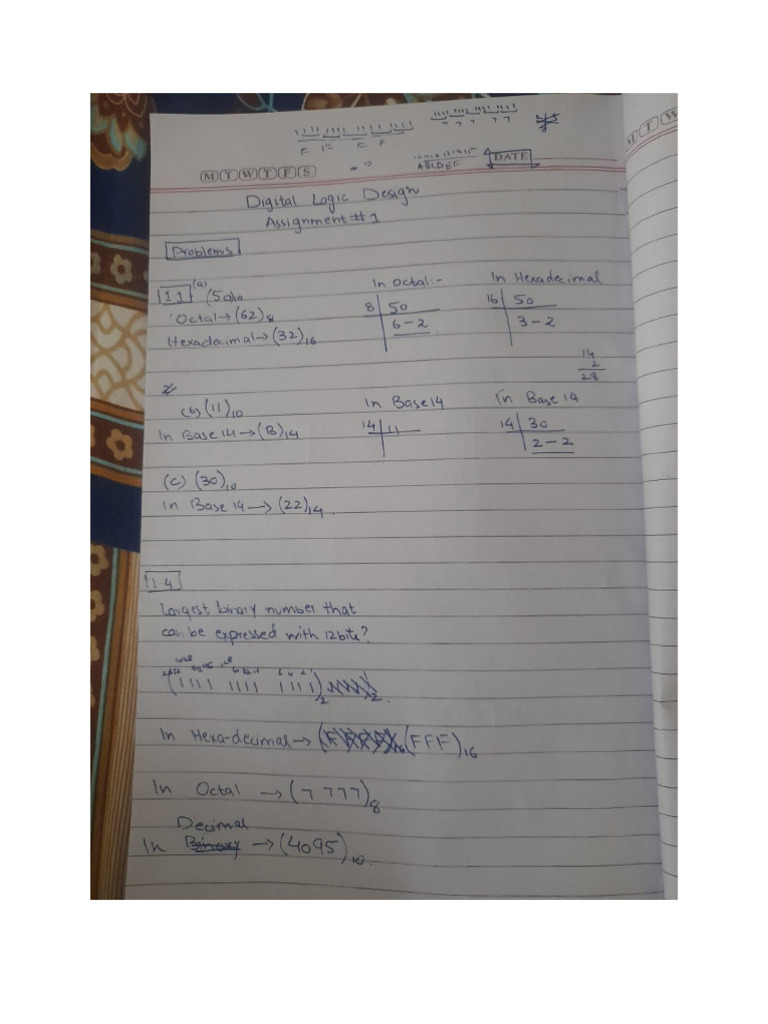 1111 1111 1111 1111
F F F F
7 7 7 7 7
M T W T F S
ABCDEF
DATE
M T W
Digital Logic Design
Assignment #1
Problems
1.1 (a) (50)10
Octal → (62)8
Hexadecimal → (32)16
In Octal:-
8 | 50
6 - 2
In Hexadecimal
16 | 50
3 - 2
14
2
28
(b) (11)10
In Base 14 → (B)14
In Base 14
14 | 11
In Base 14
14 | 30
2 - 2
(c) (30)10
In Base 14 → (22)14.
1.4
Largest binary number that
can be expressed with 12 bits?
(1111 1111 1111)2
In Hexa-decimal → (FFF)16
In Octal → (7777)8
Decimal
In Binary → (4095)10.